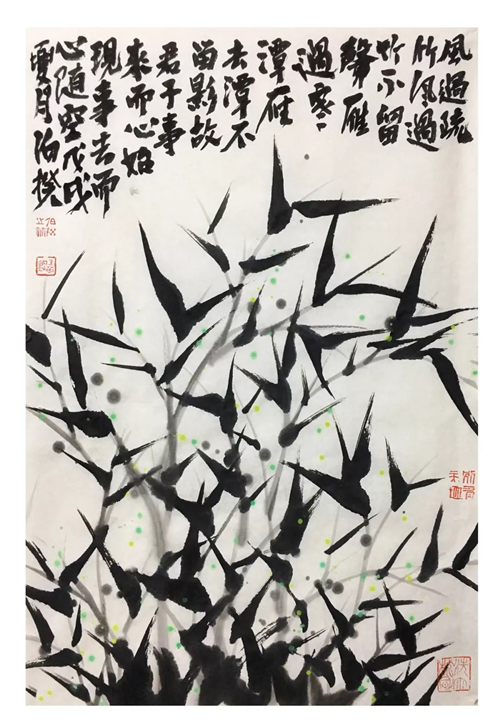 風過疏
竹風過
竹不留
聲雁
過寒
潭雁
去潭不
留影故
君子事
來而心始
現事去而
心隨空戊戌
夏月伯揆